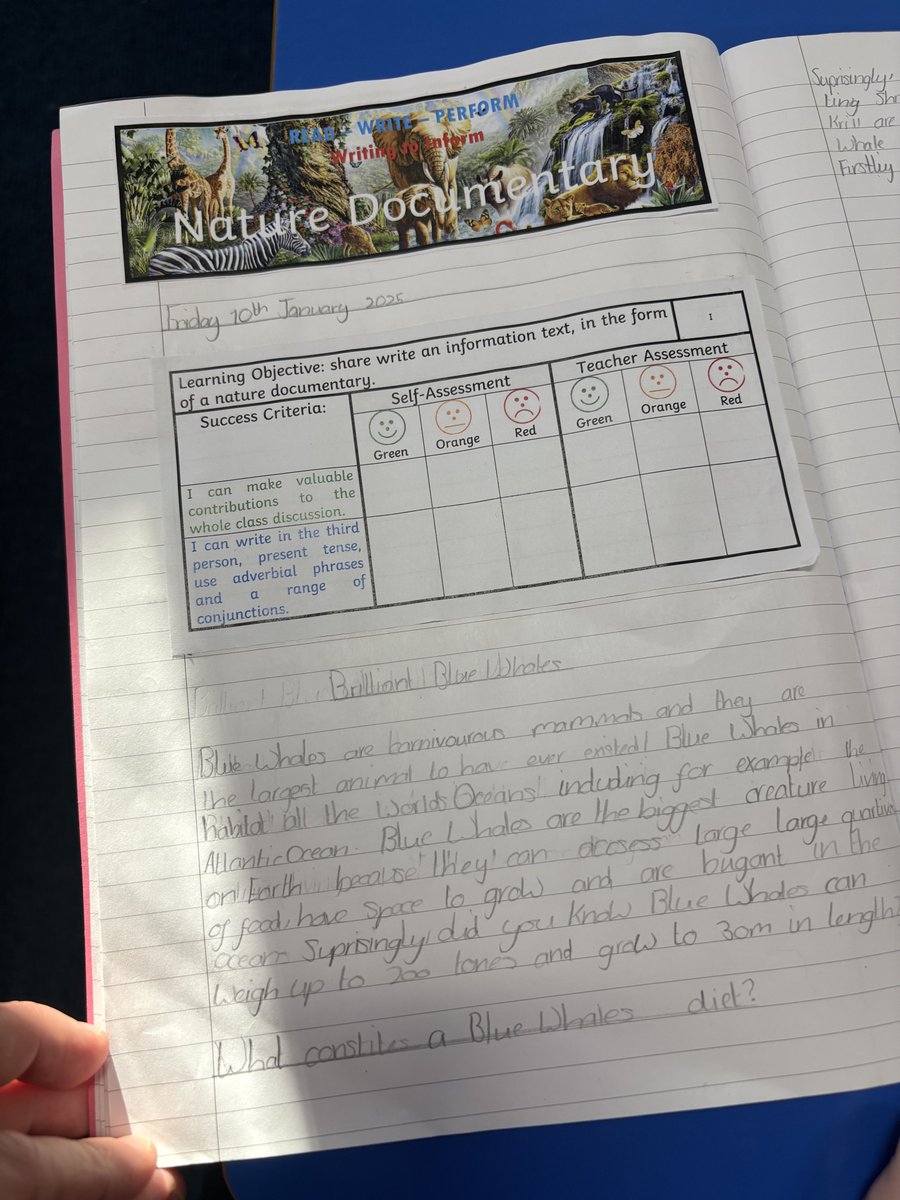 READ - WRITE - PERFORM
Writing to Inform
Nature Documentary
Friday 10th January 2025
Learning Objective: share write an information text, in the form
of a nature documentary.
1
Success Criteria:
Self-Assessment
Teacher Assessment
Green
Orange
Red
Green
Orange
Red
I can make valuable
contributions to the
whole class discussion.
I can write in the third
person, present tense,
use adverbial phrases
and a range of
conjunctions.
Brilliant Blue Whales
Blue Whales are carnivourous mammals and they are
the largest animal to have ever existed! Blue Whales in
habitat all the Worlds Oceans including for example the
Atlantic Ocean. Blue Whales are the biggest creature living
on Earth because they can large large
of food, have space to grow and are bugant in the
ocean. Suprisingly, did you know Blue Whales can
weigh up to 200 tones and grow to 30m in length?
What constites a Blue Whales diet?
Suprisingly,
ting Shr
Krill are
Whale
Firstly